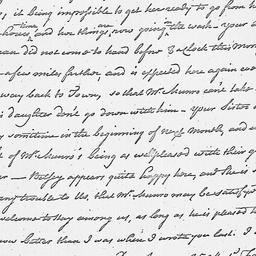 , it being impossible to get her ready to go from h
hours, and her things, now going the wash - your
did not come to hand before 8 o'Clock this Mor
a few miles farther and is expected here again
way back to Town, so that Mr. Munro can't take
is daughter don't go down with him - your Sister
sometime in the beginning of next Month, and
of Mr. Munro's being as well pleased with their
- Betsey appears quite happy here, and she is
any trouble to Us, that Mr. Munro may be satisfy'd
welcome to stay among us, as long as he is pleased
better than I was when I wrote you last. I